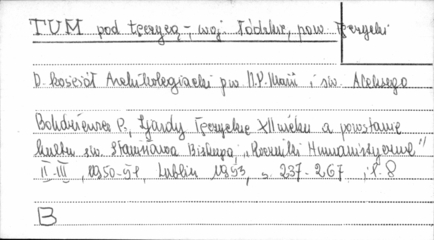 TUM pod Łęczycą - woj. Łódzkie, pow. Łęczycki
D. kościół Archikolegiacki pw N.P. Marii i św. Aleksego
Bohdziewicz P., Zjazdy Łęczyckie XII wieku a powstanie
kultu św. Stanisława Biskupa, „Roczniki Humanistyczne"
II-III, 1950-51, Lublin 1953, s. 237-267, il. 8
B